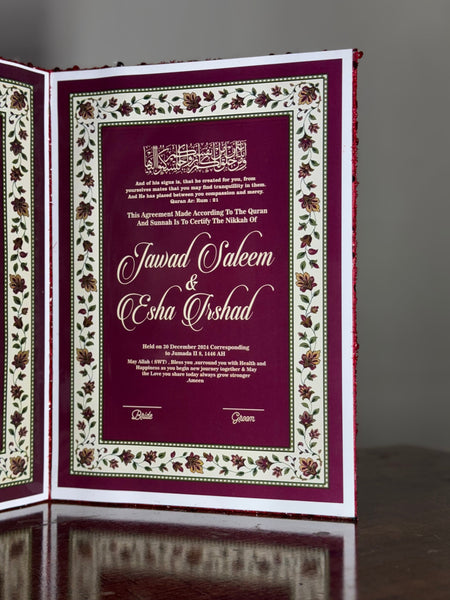 And of his signs is, that he created for you, from
yourselves mates that you may find tranquillity in them.
And He has placed between you compassion and mercy.
Quran Ar: Rum : 21
This Agreement Made According To The Quran
And Sunnah Is To Certify The Nikkah Of
Jawad Saleem
&
Esha Irshad
Held on 20 December 2024 Corresponding
to Jumada II 8, 1446 AH
May Allah ( SWT) , Bless you ,surround you with Health and
Happiness as you begin new journey together & May
the Love you share today always grow stronger
.Ameen
Bride Groom